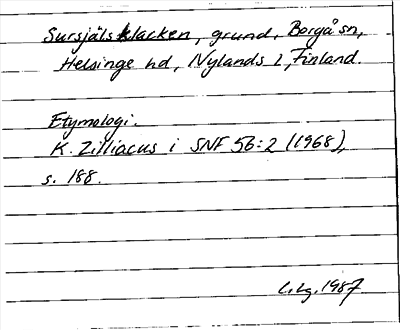 Sursjälsklacken, grund, Borgå sn,
Helsinge hd, Nylands l, Finland.
Etymologi.
K. Zilliacus i SNF 56:2 (1968),
s. 188.
L.Lg. 1987